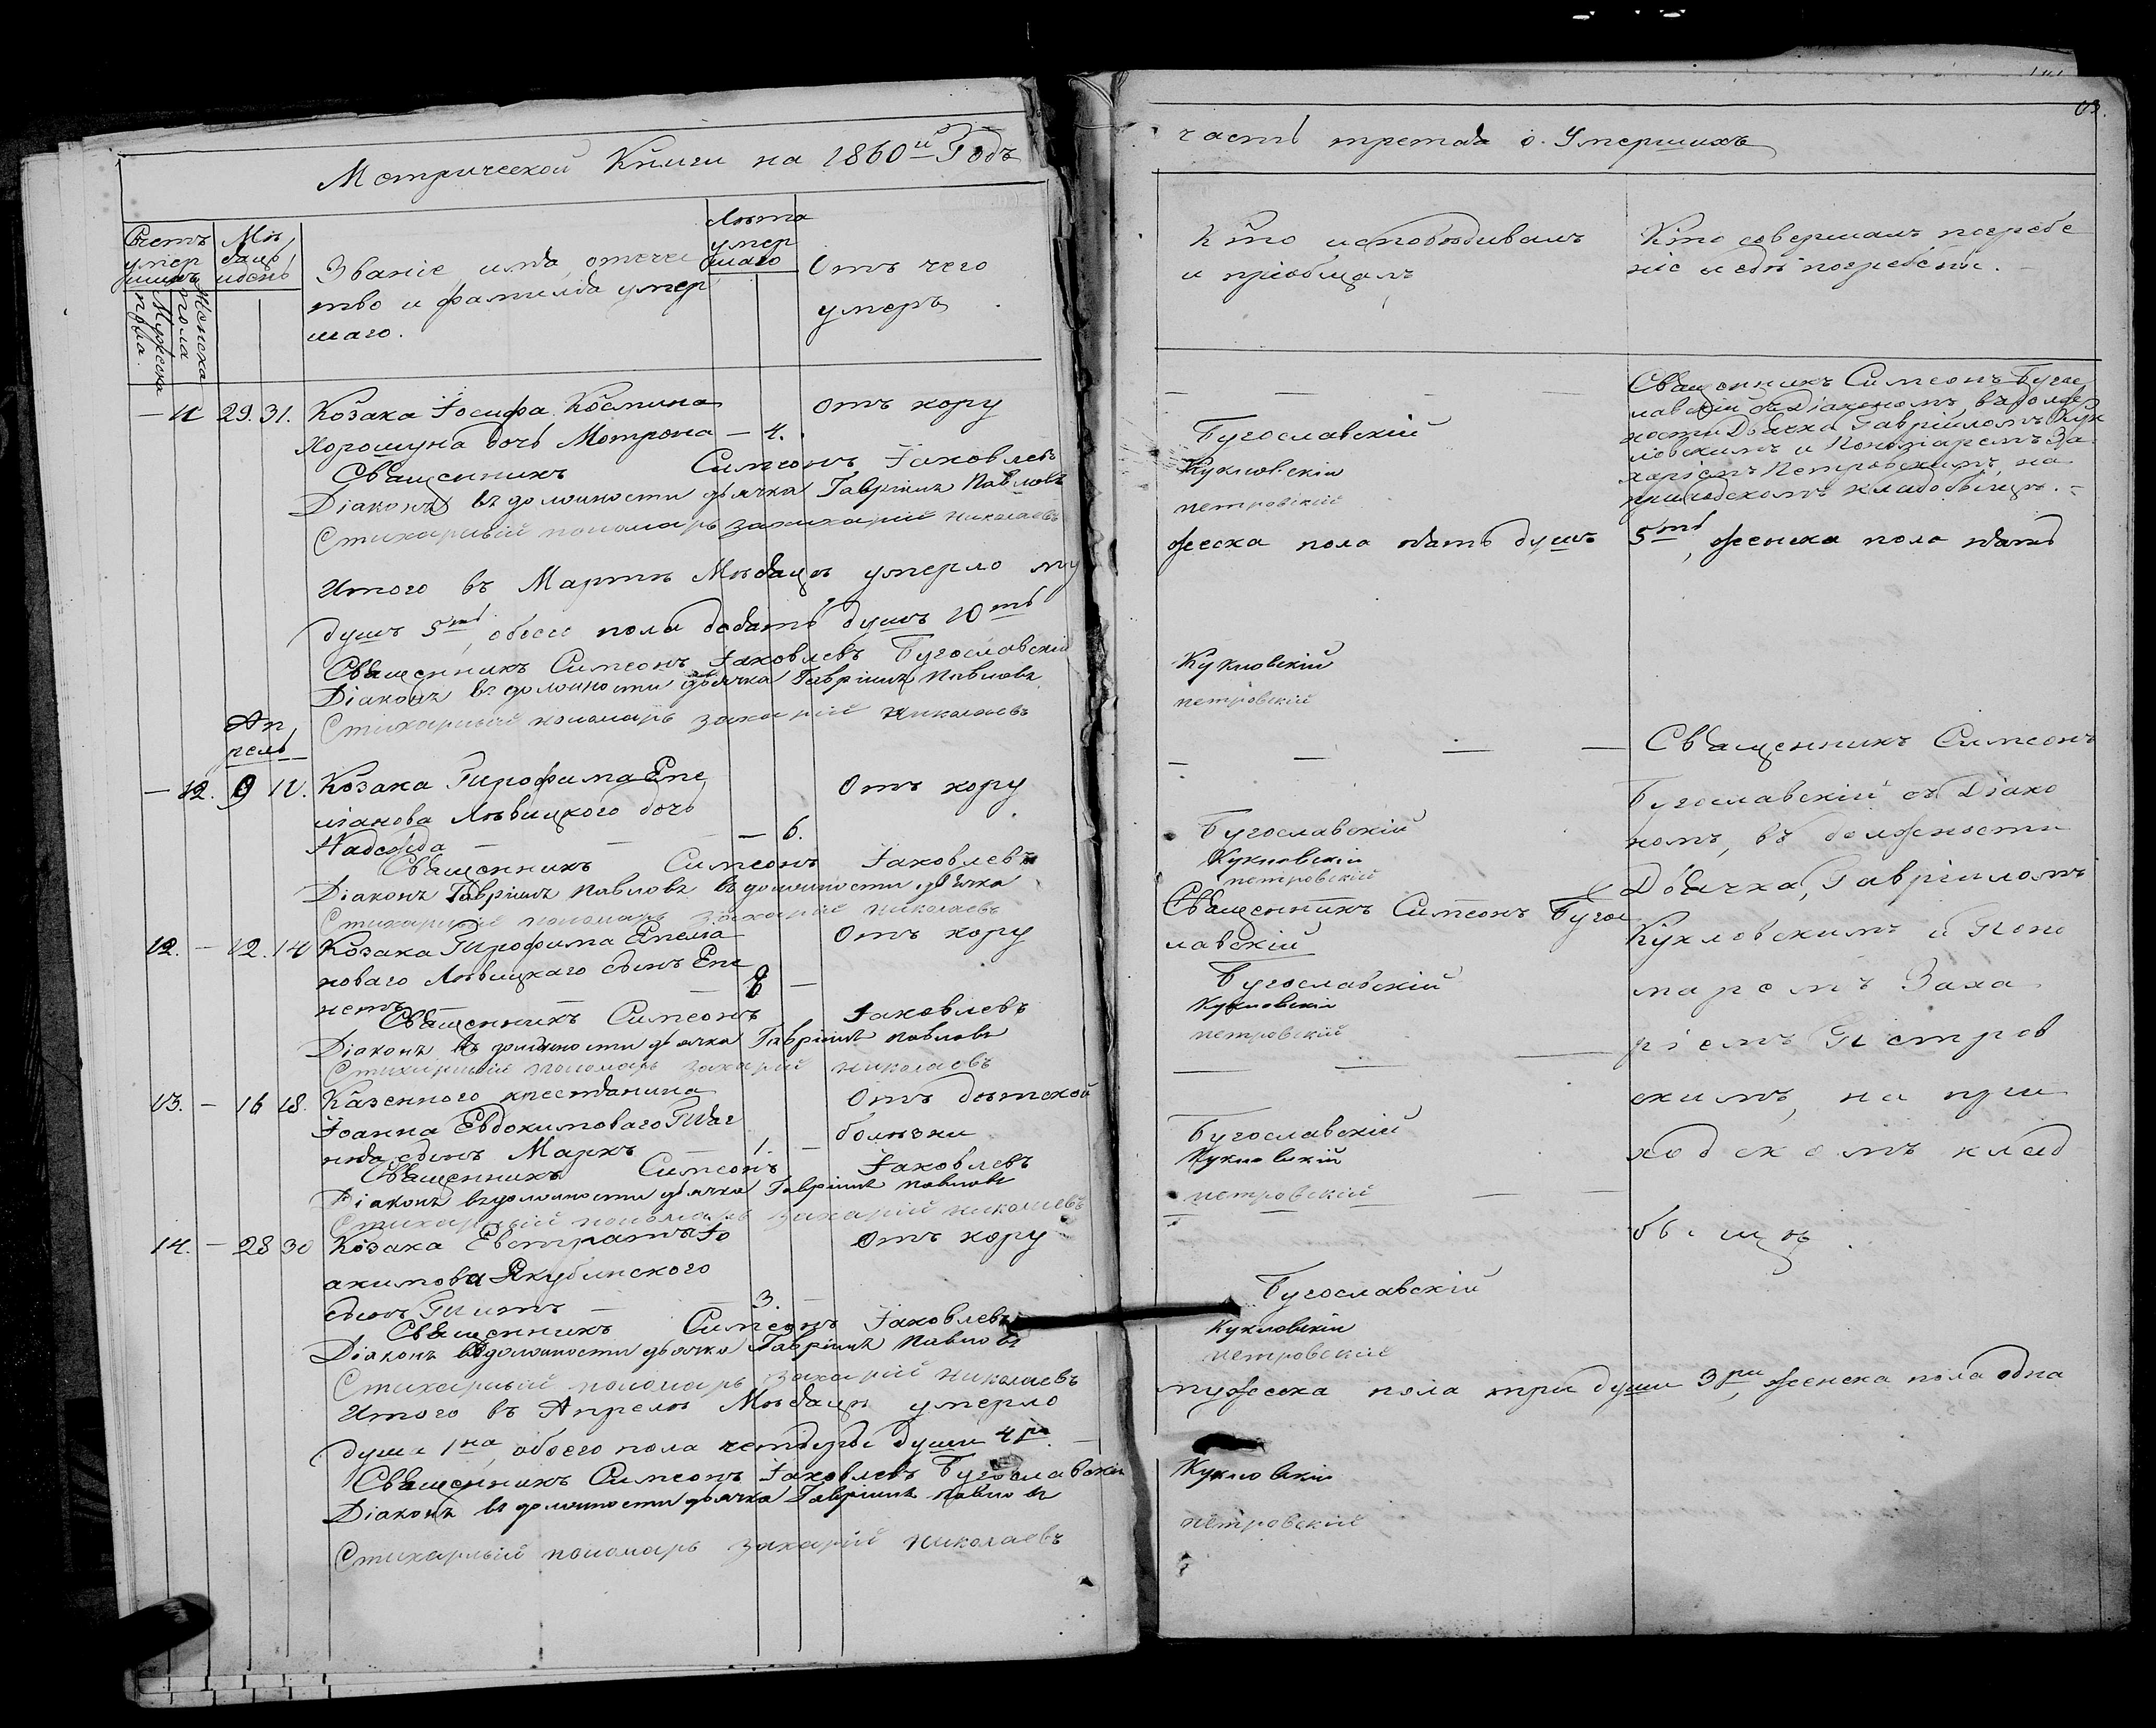 Метрической Книги на 1860й Годъ
Счетъ умер шихъ
Мужеска пола.
Женска пола
Мѣсяцъ и день
Званіе, имя, отече
ство и фамилія умер
шаго.
Лѣта умер шаго
Отъ чего
умеръ
— 11 29. 31. Козака Іосифа Космина Отъ кору
Хорошуна дочь Мотрона — 4.
Священникъ Симеонъ Іаковлевъ
Діаконъ въ должности дьячка Гавріилъ Павловъ
Стихарный пономарь Захарій Николаевъ
Итого въ Мартѣ Мѣсяцѣ умерло му
душъ 5ть, обоего пола десять душъ 10ть
Священникъ Симеонъ Іаковлевъ Бугославскій
Діаконъ въ должности дьячка Гавріилъ Павловъ
Стихарный пономарь Захарій Николаевъ
Ап
рель
— 12. 9 11. Козака Трофима Епе Отъ кору
ліанова Лѣвицкого дочь
Надежда — — — 6.
Священникъ Симеонъ Іаковлевъ
Діаконъ Гавріилъ Павловъ въ должности дьячка
Стихарный пономарь Захарій Николаевъ
12. — 12. 14 Козака Трофима Емелія Отъ кору
новаго Лѣвицкаго сынъ
Священникъ Симеонъ Іаковлевъ
Діаконъ въ должности дьячка Гавріилъ Павловъ
Стихарный пономарь Захарій Николаевъ
13. — 16 18. Казенного крестьянина Отъ дѣтской
Іоанна Евдокимоваго болѣзни
сынъ Маркъ — 1. —
Священникъ Симеонъ Іаковлевъ
Діаконъ въ должности дьячка Гавріилъ Павловъ
Стихарный пономарь Захарій Николаевъ
14. — 28 30 Козака Евстратія Іо Отъ кору
акимова Якубинского
сынъ Титъ — — 3. —
Священникъ Симеонъ Іаковлевъ
Діаконъ въ должности дьячка Гавріилъ Павловъ
Стихарный пономарь Захарій Николаевъ
Итого въ Апрелѣ Мѣсяцѣ умерло
душа 1на, обоего пола четыре души 4ре. —
Священникъ Симеонъ Іаковлевъ Бугославскій
Діаконъ въ должности дьячка Гавріилъ Павловъ
Стихарный пономарь Захарій Николаевъ
часть третья о Умершихъ
Кто исповѣдивалъ
и пріобщалъ
Кто совершалъ погребе
ніе и гдѣ погребены. —
Бугославскій
Кукловскій
петровскій
Священникъ Симеонъ Бугос
лавскій съ Діакономъ, въ долж
ности Дьячка Гавріиломъ Кук
ловскимъ и Пономаремъ За
харіемъ Петровскимъ, на
приходскомъ кладовыщѣ. —
жеска пола пять душъ 5ть, женска пола пять
Кукловскій
петровскій
Бугославскій
Кукловскій
петровскій
Священникъ Симеонъ Бугос
лавскій
Бугославскій
Кукловскій
петровскій
Бугославскій
Кукловскій
петровскій
Бугославскій
Кукловскій
петровскій
Священникъ Симеонъ
Бугославскій съ Діако
номъ, въ должности
Дьячка, Гавріиломъ
Кукловскимъ и Поно
маремъ Заха
ріемъ Петров
скимъ, на при
ходскомъ клад
мужеска пола три души 3ри, женска пола одна
Кукловскій
петровскій